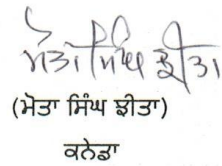 ਮੋਤਾ ਸਿੰਘ ਝੀਤਾ
(ਮੋਤਾ ਸਿੰਘ ਝੀਤਾ)
ਕਨੇਡਾ